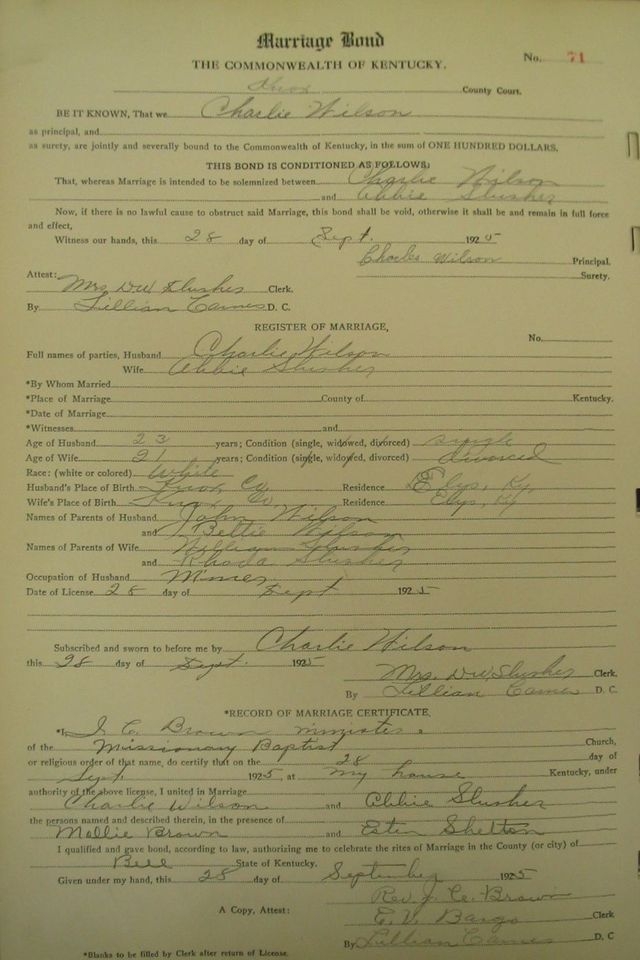 Marriage Bond
THE COMMONWEALTH OF KENTUCKY.
No. 71
Knox County Court.
BE IT KNOWN, That we Charlie Wilson
as principal, and
as surety, are jointly and severally bound to the Commonwealth of Kentucky, in the sum of ONE HUNDRED DOLLARS.
THIS BOND IS CONDITIONED AS FOLLOWS:
That, whereas Marriage is intended to be solemnized between Charlie Wilson
and Abbie Slusher
Now, if there is no lawful cause to obstruct said Marriage, this bond shall be void, otherwise it shall be and remain in full force
and effect,
Witness our hands, this 28 day of Sept. 1925
Charles Wilson Principal.
Surety.
Attest:
Mrs DW Slusher Clerk.
By Lillian D. C.
REGISTER OF MARRIAGE,
No.
Full names of parties, Husband Charlie Wilson
Wife Abbie Slusher
*By Whom Married
*Place of Marriage County of Kentucky.
*Date of Marriage
*Witnesses and
Age of Husband 23 years; Condition (single, widowed, divorced) single
Age of Wife 21 years; Condition (single, widowed, divorced) divorced
Race: (white or colored) White
Husband's Place of Birth Knox Co Residence Elys, Ky,
Wife's Place of Birth Knox Co, Residence Elys, Ky
Names of Parents of Husband John Wilson
and Bettie Wilson
Names of Parents of Wife William Slusher
and Rhoda Slusher
Occupation of Husband Miner
Date of License 28 day of Sept 1925
Subscribed and sworn to before me by Charlie Wilson
this 28 day of Sept. 1925
Mrs. DW Slusher Clerk.
By Lillian D. C.
*RECORD OF MARRIAGE CERTIFICATE,
*I, J. C. Brown minister
of the Missionary Baptist Church,
or religious order of that name, do certify that on the 28 day of
Sept 1925, at my house Kentucky, under
authority of the above license, I united in Marriage
Charlie Wilson and Abbie Slusher
the persons named and described therein, in the presence of
Mollie Brown and Ester Shelton
I qualified and gave bond, according to law, authorizing me to celebrate the rites of Marriage in the County (or city) of
Bell State of Kentucky.
Given under my hand, this 28 day of September 1925
Rev. J. C. Brown
A Copy, Attest: E. V. Bargo Clerk
By Lillian D. C
*Blanks to be filled by Clerk after return of License.